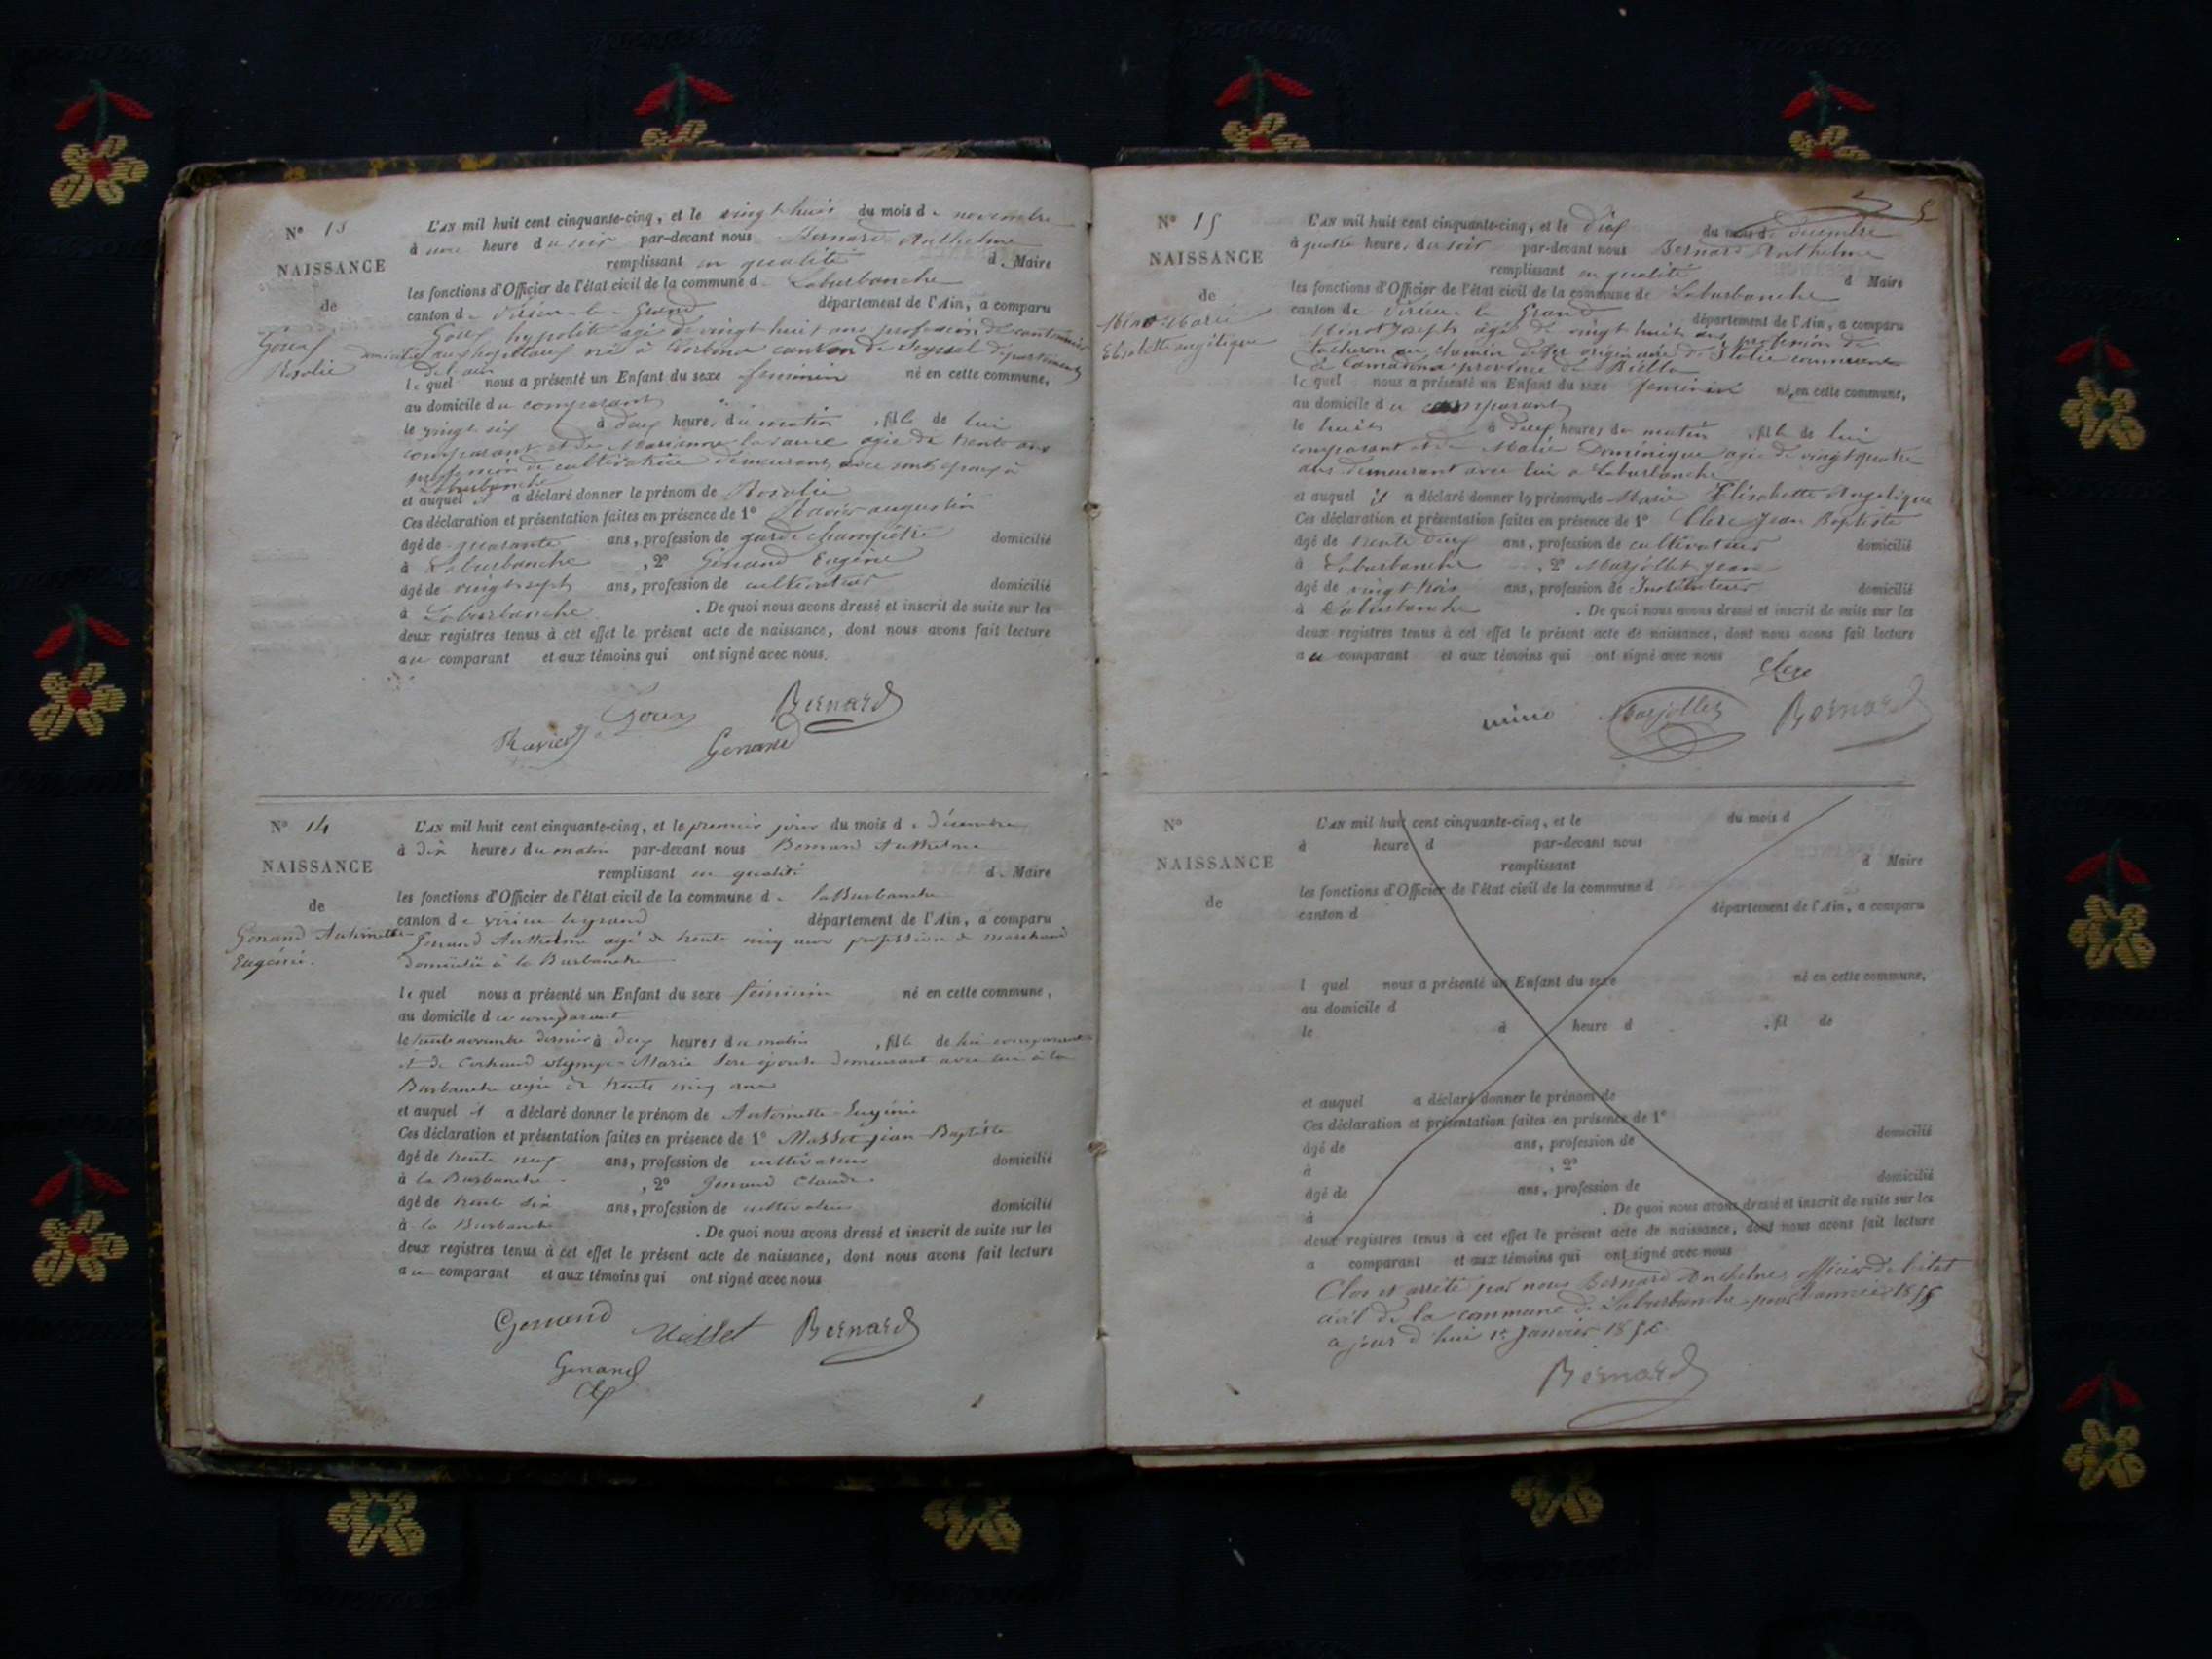 N° 13
NAISSANCE
de
Goux
Rosalie
L'AN mil huit cent cinquante-cinq, et le vingt huit du mois de novembre
à une heure du soir par-devant nous Bernard Anthelme
remplissant en qualité de Maire
les fonctions d'Officier de l'état civil de la commune de Laburbanche
canton de Virieu-le-Grand département de l'Ain, a comparu
Goux hypolite agé de vingt huit ans profession de cantonnier
domicilié aux hopitaux né à Corbonod canton de Seyssel département
de l'ain
lequel nous a présenté un Enfant du sexe feminin né en cette commune,
au domicile du comparant
le vingt six à deux heures du matin, fille de lui
comparant et de Marienne agée de trente ans
profession de cultivatrice demeurant avec son epoux à
Laburbanche
et auquel il a déclaré donner le prénom de Rosalie
Ces déclaration et présentation faites en présence de 1° Ravier augustin
âgé de quarante ans, profession de garde champêtre domicilié
à Laburbanche, 2° Genand Eugène
âgé de vingt sept ans, profession de cultivateur domicilié
à Laburbanche. De quoi nous avons dressé et inscrit de suite sur les
deux registres tenus à cet effet le présent acte de naissance, dont nous avons fait lecture
au comparant et aux témoins qui ont signé avec nous.
Goux Bernard
Ravier Genand
N° 14
NAISSANCE
de
Genand Antoinette
Eugénie.
L'AN mil huit cent cinquante-cinq, et le premier jour du mois de Décembre
à dix heures du matin par-devant nous Bernard Anthelme
remplissant en qualité de Maire
les fonctions d'Officier de l'état civil de la commune de la Burbanche
canton de virieu legrand département de l'Ain, a comparu
Genand Anthelme agé de trente cinq ans profession de marchand
domicilié à la Burbanche
lequel nous a présenté un Enfant du sexe féminin né en cette commune,
au domicile du comparant
le trente novembre dernier à deux heures du matin, fille de lui comparant
et de olympe Marie son épouse demeurant avec lui à la
Burbanche agée de trente cinq ans
et auquel il a déclaré donner le prénom de Antoinette Eugénie
Ces déclaration et présentation faites en présence de 1° Masset jean Baptiste
âgé de trente neuf ans, profession de cultivateur domicilié
à la Burbanche, 2° Genand Claude
âgé de trente six ans, profession de cultivateur domicilié
à la Burbanche. De quoi nous avons dressé et inscrit de suite sur les
deux registres tenus à cet effet le présent acte de naissance, dont nous avons fait lecture
au comparant et aux témoins qui ont signé avec nous
Genand Masset Bernard
Genand
Cl
5
N° 15
NAISSANCE
de
Mino Marie
Elisabette angélique
L'AN mil huit cent cinquante-cinq, et le dix du mois de decembre
à quatre heures du soir par-devant nous Bernard Anthelme
remplissant en qualité d Maire
les fonctions d'Officier de l'état civil de la commune de Laburbanche
canton de Virieu le Grand département de l'Ain, a comparu
Minot Joseph agé de vingt huit ans profession de
tacheron au chemin de fer origenaire d'Italie commune
de province de Biella
lequel nous a présenté un Enfant du sexe feminin né en cette commune,
au domicile du comparant
le huit à deux heures du matin, fille de lui
comparant et de Marie Dominique agée de vingt quatre
ans demeurant avec lui a Laburbanche
et auquel il a déclaré donner les prénoms de Marie Elisabette Angelique
Ces déclaration et présentation faites en présence de 1° Clerc Jean Baptiste
âgé de trente deux ans, profession de cultivateur domicilié
à Laburbanche, 2° Marjollet Jean
âgé de vingt trois ans, profession de Instituteur domicilié
à Laburbanche. De quoi nous avons dressé et inscrit de suite sur les
deux registres tenus à cet effet le présent acte de naissance, dont nous avons fait lecture
au comparant et aux témoins qui ont signé avec nous
Clerc
mino Marjollet Bernard
N°
NAISSANCE
de
L'AN mil huit cent cinquante-cinq, et le du mois d
à heure d par-devant nous
remplissant d Maire
les fonctions d'Officier de l'état civil de la commune d
canton d département de l'Ain, a comparu
l quel nous a présenté un Enfant du sexe né en cette commune,
au domicile d
le à heure d, fil de
et auquel a déclaré donner le prénom de
Ces déclaration et présentation faites en présence de 1°
âgé de ans, profession de domicilié
à, 2°
âgé de ans, profession de domicilié
à. De quoi nous avons dressé et inscrit de suite sur les
deux registres tenus à cet effet le présent acte de naissance, dont nous avons fait lecture
a comparant et aux témoins qui ont signé avec nous
Clos et arrété par nous Bernard Anthelme officier de l'état
civil de la commune de Laburbanche pour l'année 1855
a jour d'hui 1er Janvier 1856.
Bernard